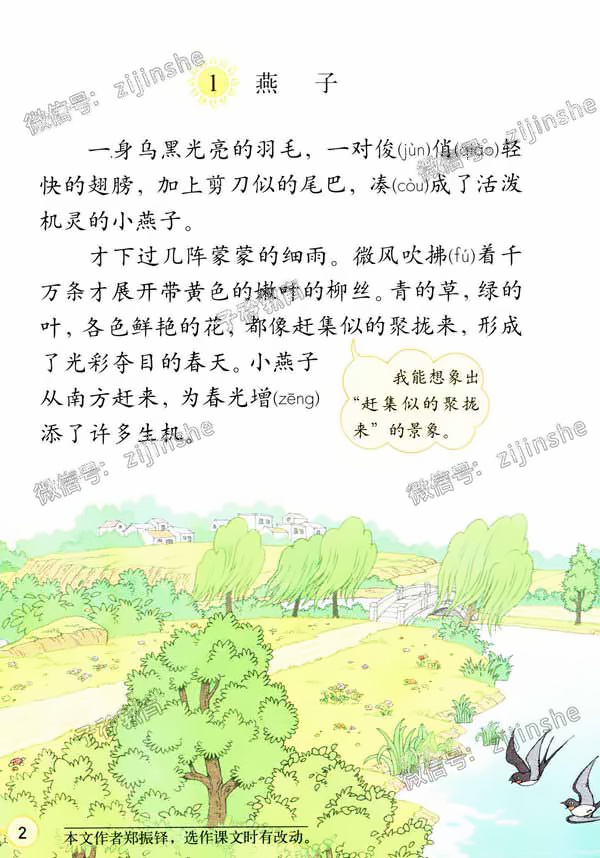 1 燕 子
一身乌黑光亮的羽毛，一对俊(jùn)俏(qiào)轻
快的翅膀，加上剪刀似的尾巴，凑(còu)成了活泼
机灵的小燕子。
才下过几阵蒙蒙的细雨。微风吹拂(fú)着千
万条才展开带黄色的嫩叶的柳丝。青的草，绿的
叶，各色鲜艳的花，都像赶集似的聚拢来，形成
了光彩夺目的春天。小燕子
从南方赶来，为春光增(zēng)
添了许多生机。
我能想象出
“赶集似的聚拢
来”的景象。
2
本文作者郑振铎，选作课文时有改动。
微信号：zijinshe
微信号：zijinshe
子夜新闻
微信号：zijinshe
微信号：zijinshe
微信号：zijinshe